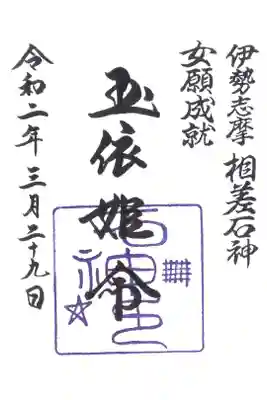 伊勢志摩 相差石神
女願成就
玉依姫命
石神さん
令和二年三月二十九日